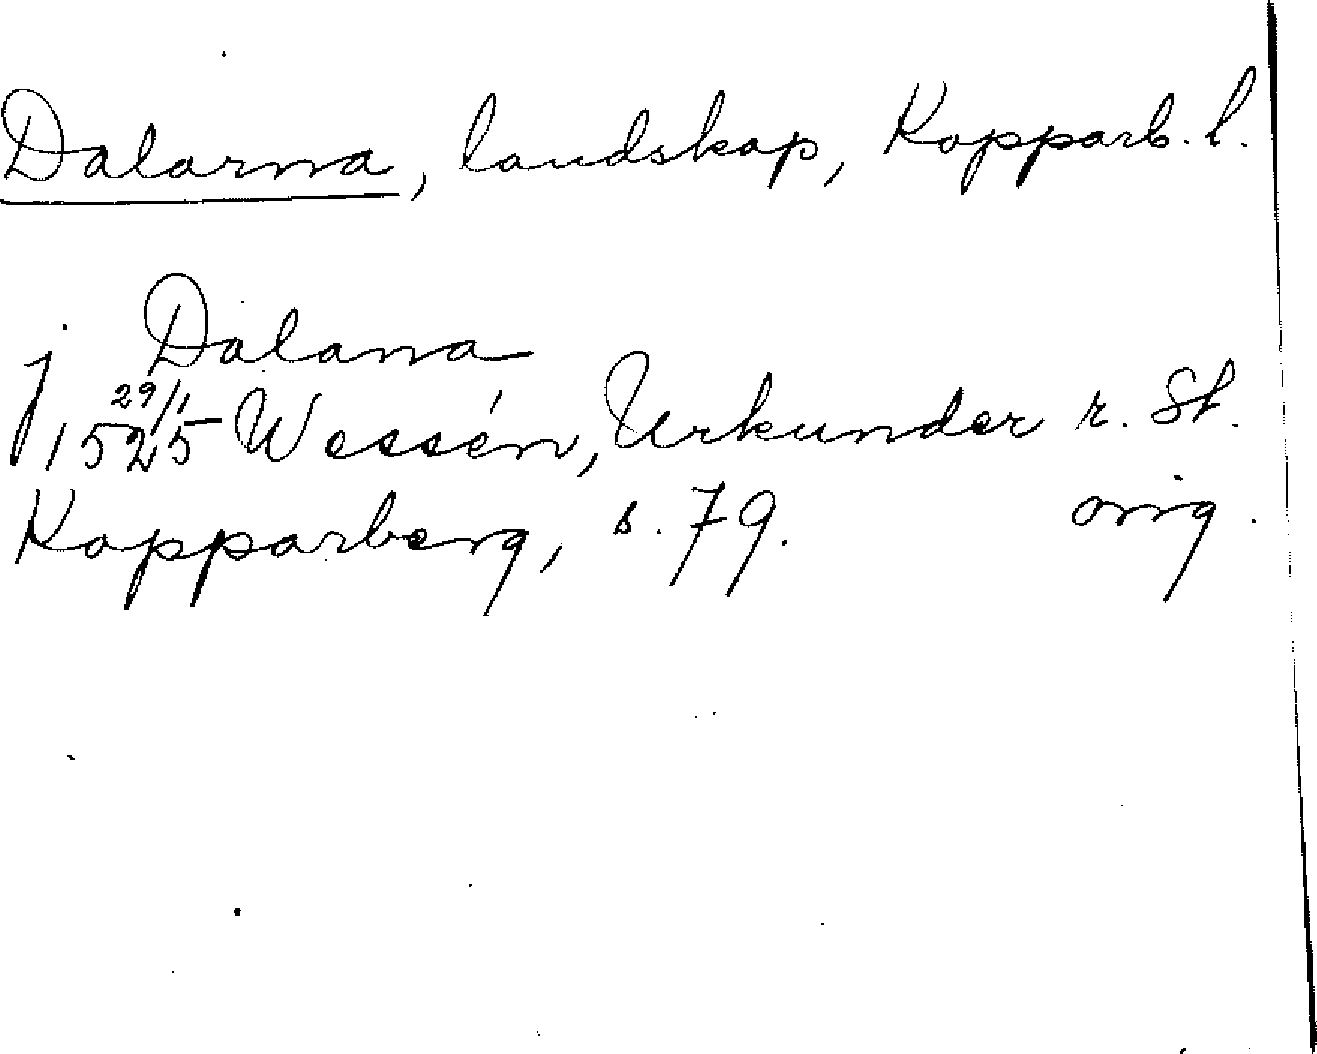 Dalarna, landskap, Kopparb. l.
j Dalana
29/1
1525 Wessén, Urkunder r. St.
Kopparberg, s. 79. orig.